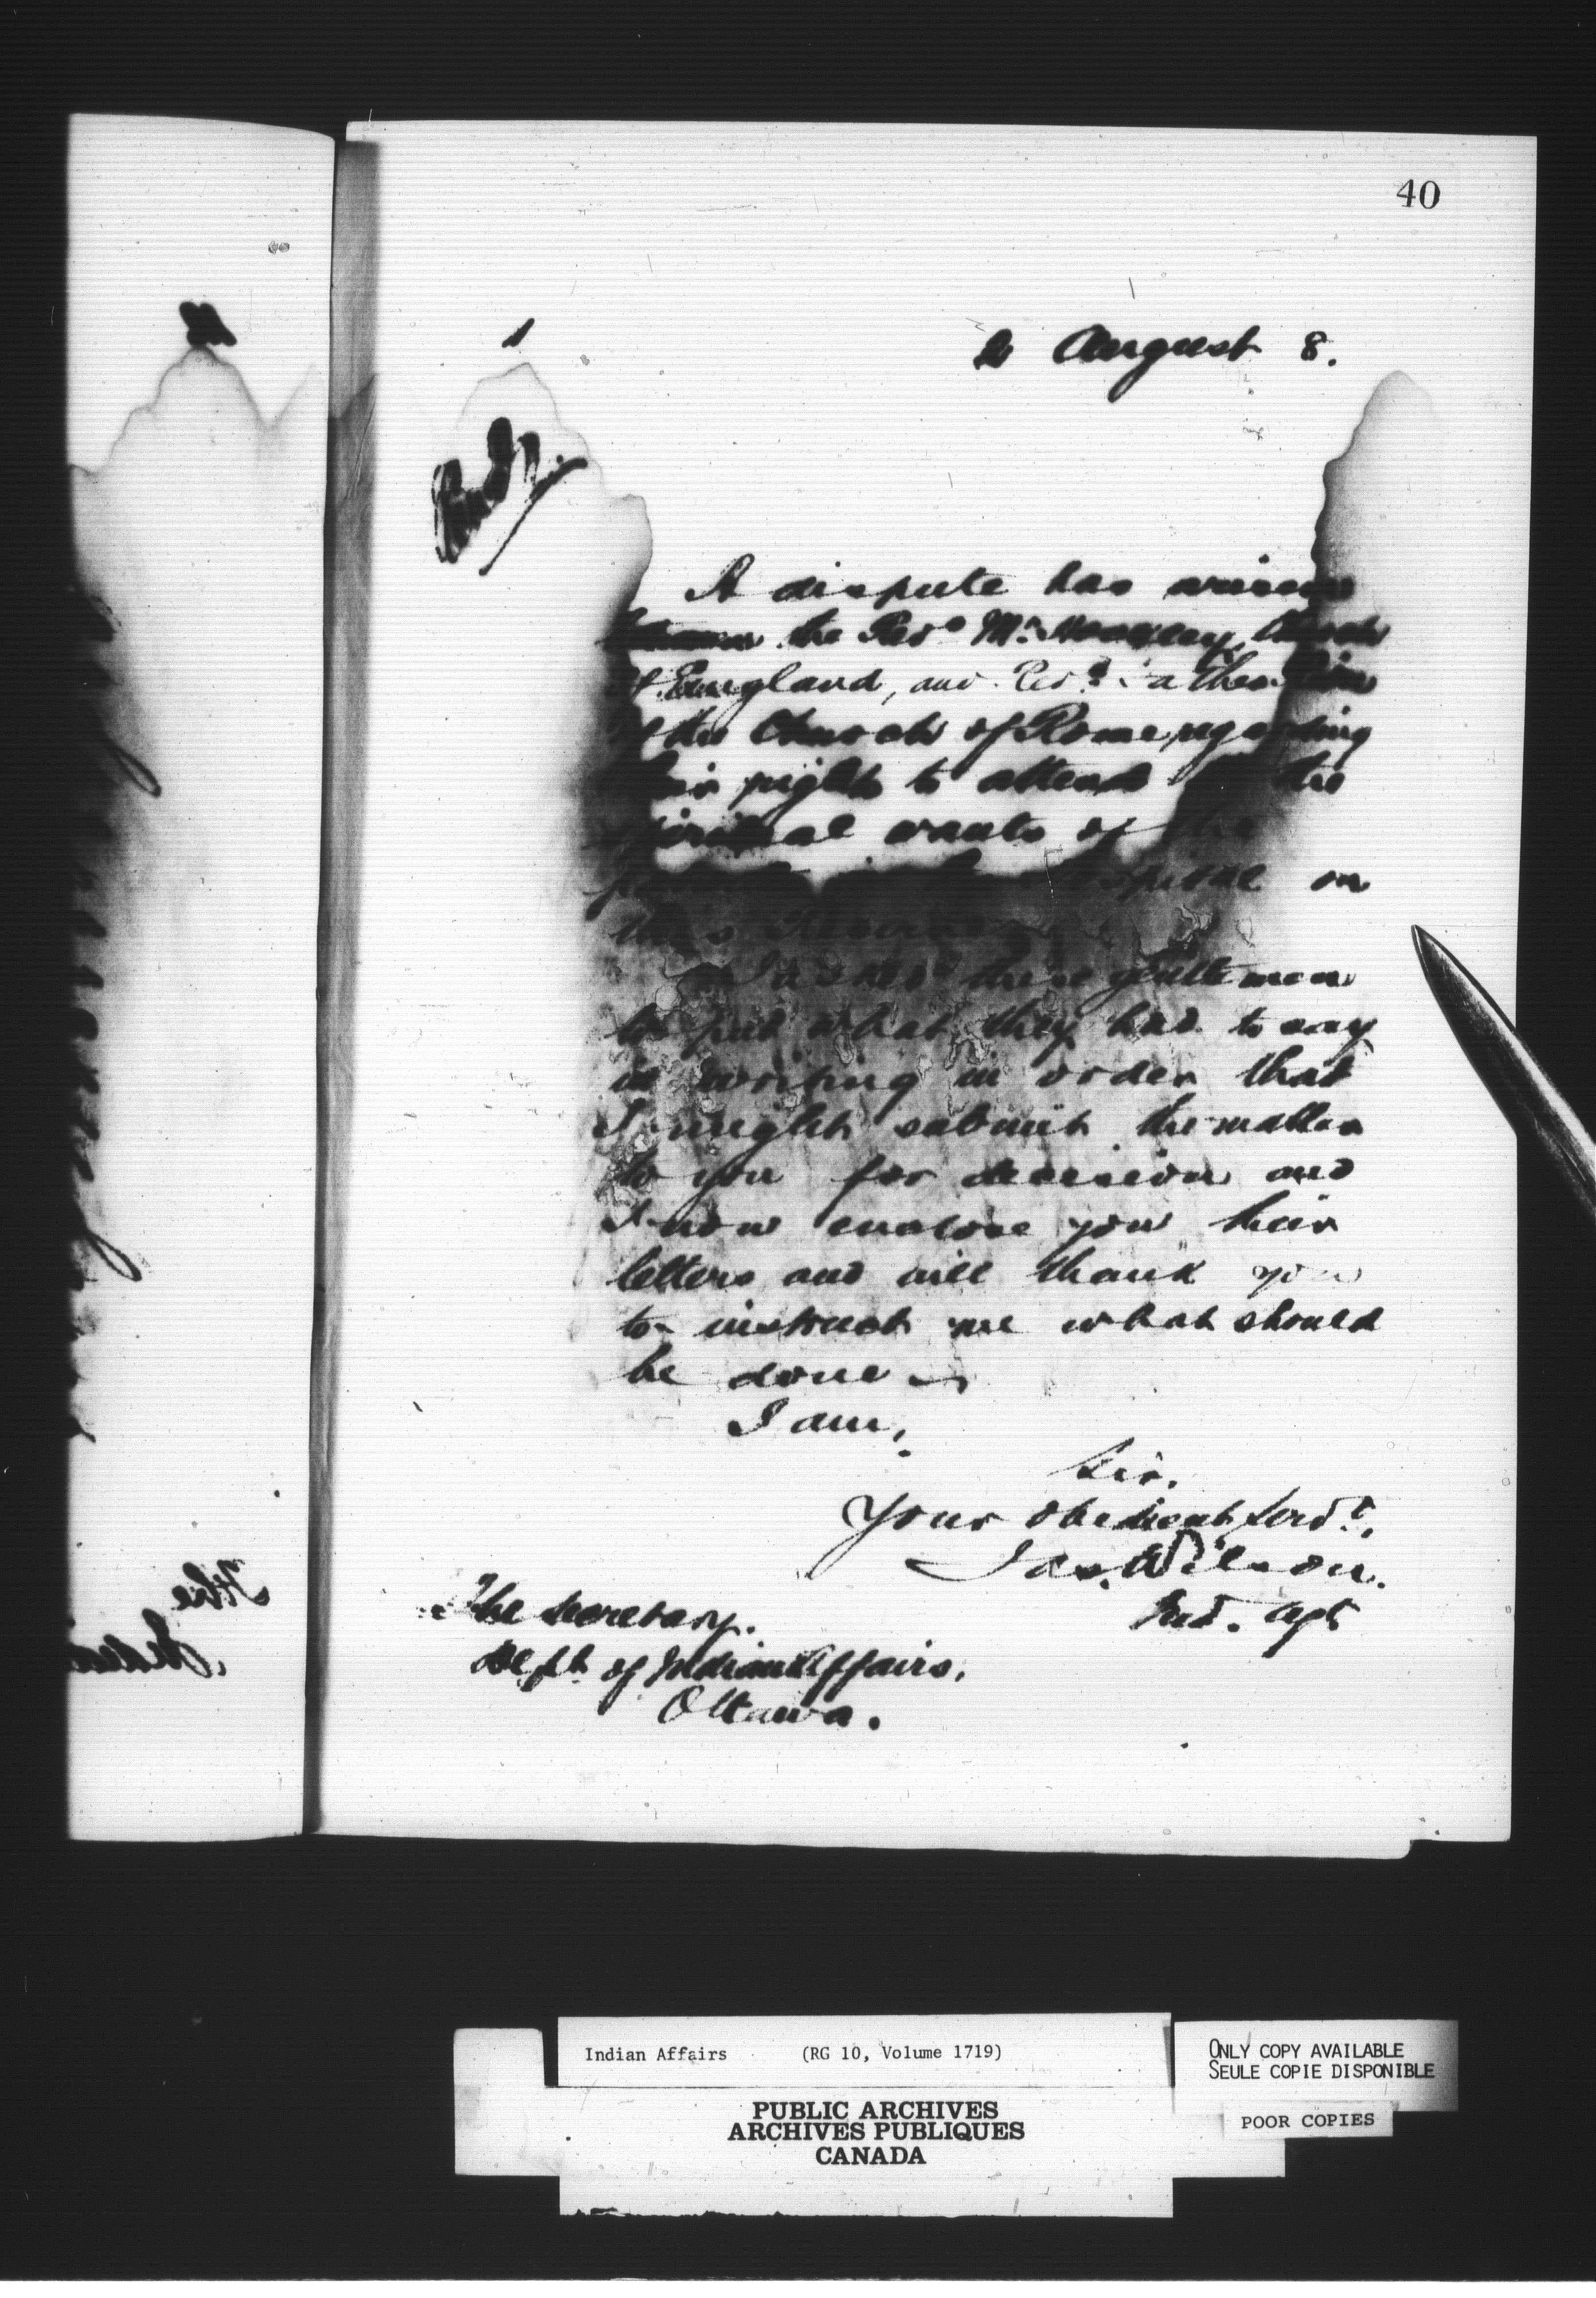 40
2 August 8.
A dispute has arisen
between the Revd Mr. Church
of England, and Revd.
of the Church of Rome, regarding
their right to attend to the
spiritual wants of the
patients in the hospital on
this Reserve
I asked these gentlemen
to put what they had to say
in writing in order that
I might submit the matter
to you for decision and
I now enclose you their
letters and will thank you
to instruct me what should
be done
I am,
Sir,
Your obedient Servt.
Jas. Wilson.
Ind. Agt
The Secretary.
Dept. of Indian Affairs.
Ottawa.
Indian Affairs (RG 10, Volume 1719)
ONLY COPY AVAILABLE
SEULE COPIE DISPONIBLE
POOR COPIES
PUBLIC ARCHIVES
ARCHIVES PUBLIQUES
CANADA